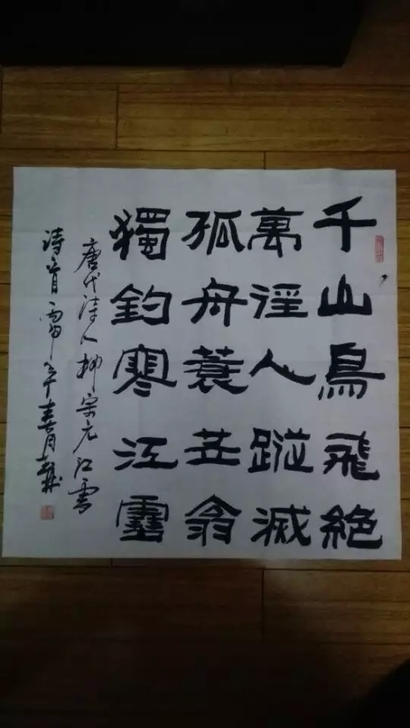 千山鳥飛絶
萬徑人蹤滅
孤舟蓑苙翁
獨釣寒江雪
唐代诗人柳宗元江雪
诗一首丙申年春月